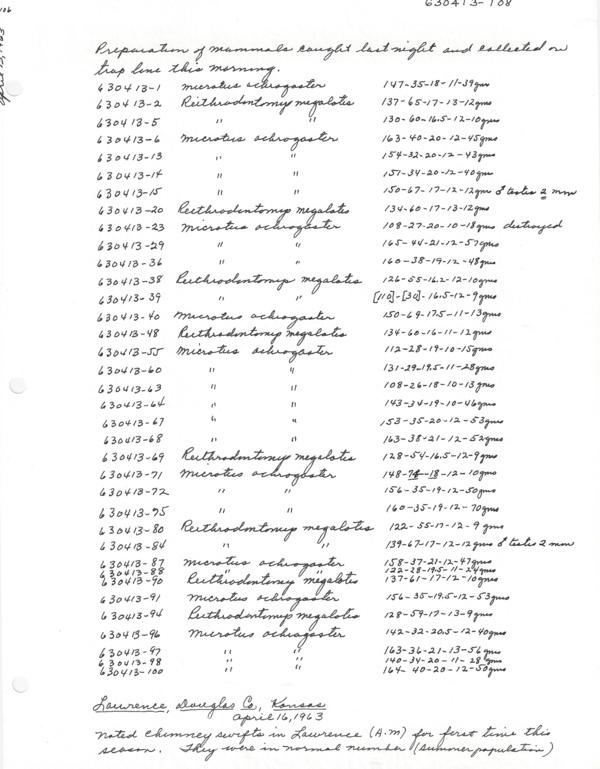 630413-108
Preparation of mammals caught last night and collected on
trap line this morning.
630413-1 Microtus ochrogaster 147-35-18-11-39gms
630413-2 Reithrodontomys megalotis 137-65-17-13-12gms
630413-5 " " 130-60-16.5-12-10gms
630413-6 Microtus ochrogaster 163-40-20-12-45gms
630413-13 " " 154-32-20-12-43gms
630413-14 " " 157-34-20-12-40gms
630413-15 " " 150-67-17-12-12gms ♂ testis 2 mm
630413-20 Reithrodontomys megalotis 134-60-17-13-12gms
630413-23 Microtus ochrogaster 108-27-20-10-18gms destroyed
630413-29 " " 165-44-21-12-57gms
630413-36 " " 160-38-19-12-48gms
630413-38 Reithrodontomys megalotis 126-55-16.2-12-10gms
630413-39 " " [110]-[30]-16.5-12-9gms
630413-40 Microtus ochrogaster 150-69-17.5-11-13gms
630413-48 Reithrodontomys megalotis 134-60-16-11-12gms
630413-55 Microtus ochrogaster 112-28-19-10-15gms
630413-60 " " 131-29-19.5-11-28gms
630413-63 " " 108-26-18-10-13gms
630413-64 " " 143-34-19-10-46gms
630413-67 " " 153-35-20-12-53gms
630413-68 " " 163-38-21-12-52gms
630413-69 Reithrodontomys megalotis 128-54-16.5-12-9gms
630413-71 Microtus ochrogaster 148-74-18-12-10gms
630413-72 " " 156-35-19-12-50gms
630413-75 " " 160-35-19-12-70gms
630413-80 Reithrodontomys megalotis 122-55-17-12-9 gms
630413-84 " " 139-67-17-12-12gms ♂ testis 2 mm
630413-87 Microtus ochrogaster 158-37-21-12-47gms
630413-88 " " 122-28-19.5-11-24gms
630413-90 Reithrodontomys megalotis 137-61-17-12-10gms
630413-91 Microtus ochrogaster 156-35-19.5-12-53gms
630413-94 Reithrodontomys megalotis 128-59-17-13-9gms
630413-96 Microtus ochrogaster 142-32-20.5-12-40gms
630413-97 " " 163-36-21-13-56gms
630413-98 " " 140-34-20-11-28gms
630413-100 " " 164-40-20-12-50gms
Lawrence, Douglas Co., Kansas
April 16, 1963
Noted Chimney swifts in Lawrence (A.M) for first time this
season. They were in normal number (summer population)